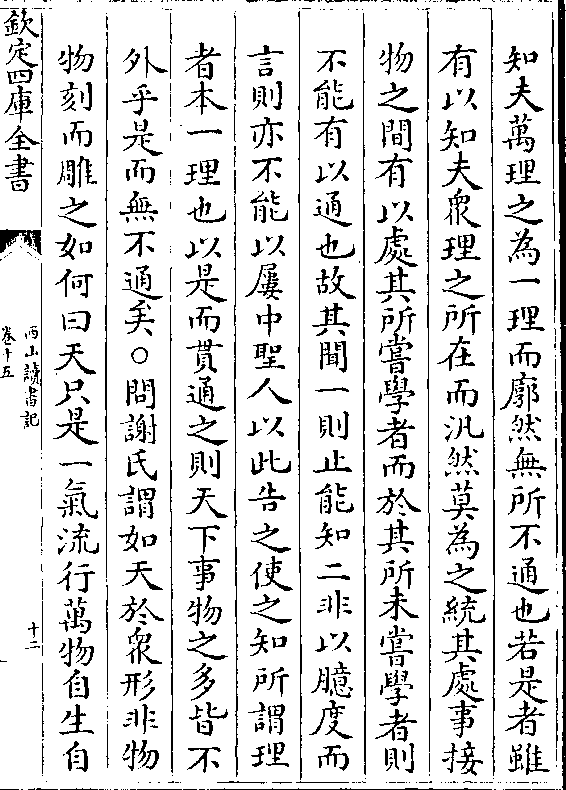 知夫萬理之為一理而廓然無所不通也若是者雖
有以知夫衆理之所在而汎然莫為之統其處事接
物之間有以處其所嘗學者而於其所未嘗學者則
不能有以通也故其聞一則止能知二非以臆度而
言則亦不能以屢中聖人以此告之使之知所謂理
者本一理也以是而貫通之則天下事物之多皆不
外乎是而無不通矣○問謝氏謂如天於衆形非物
物刻而雕之如何曰天只是一氣流行萬物自生自
欽定四庫全書
西山讀書記
卷十五
十二